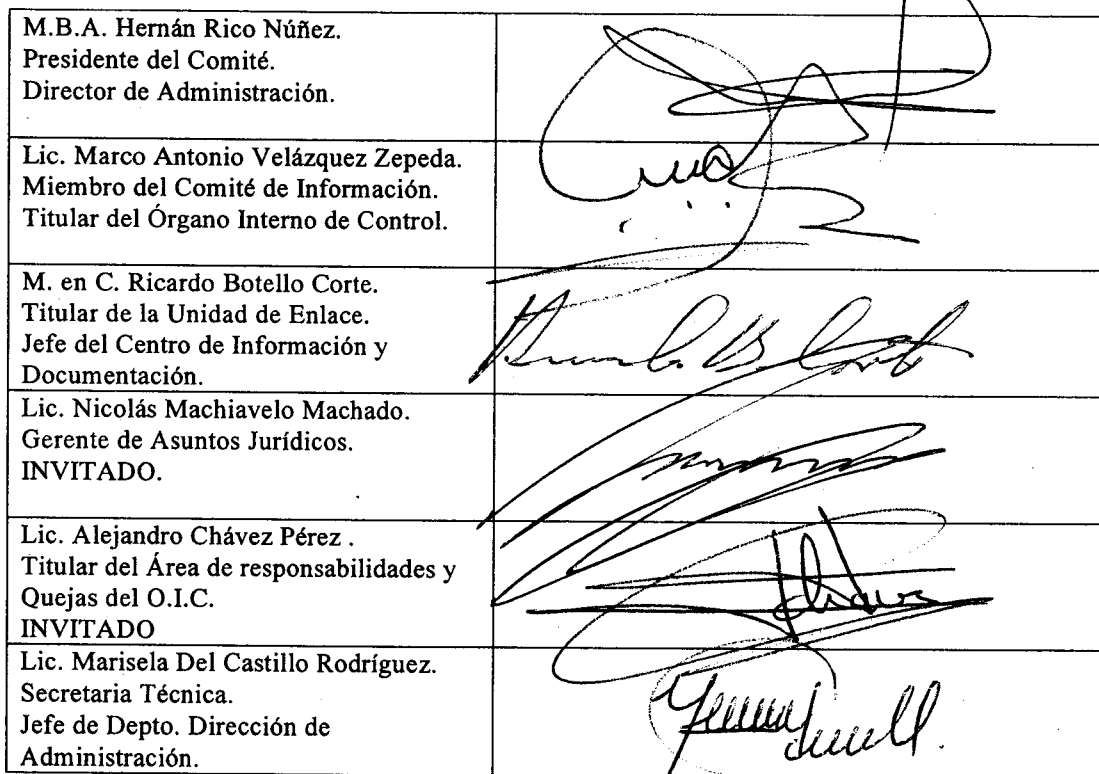 M.B.A. Hernán Rico Núñez.
Presidente del Comité.
Director de Administración.
Lic. Marco Antonio Velázquez Zepeda.
Miembro del Comité de Información.
Titular del Órgano Interno de Control.
M. en C. Ricardo Botello Corte.
Titular de la Unidad de Enlace.
Jefe del Centro de Información y
Documentación.
Lic. Nicolás Machiavelo Machado.
Gerente de Asuntos Jurídicos.
INVITADO.
Lic. Alejandro Chávez Pérez .
Titular del Área de responsabilidades y
Quejas del O.I.C.
INVITADO
Lic. Marisela Del Castillo Rodríguez.
Secretaria Técnica.
Jefe de Depto. Dirección de
Administración.